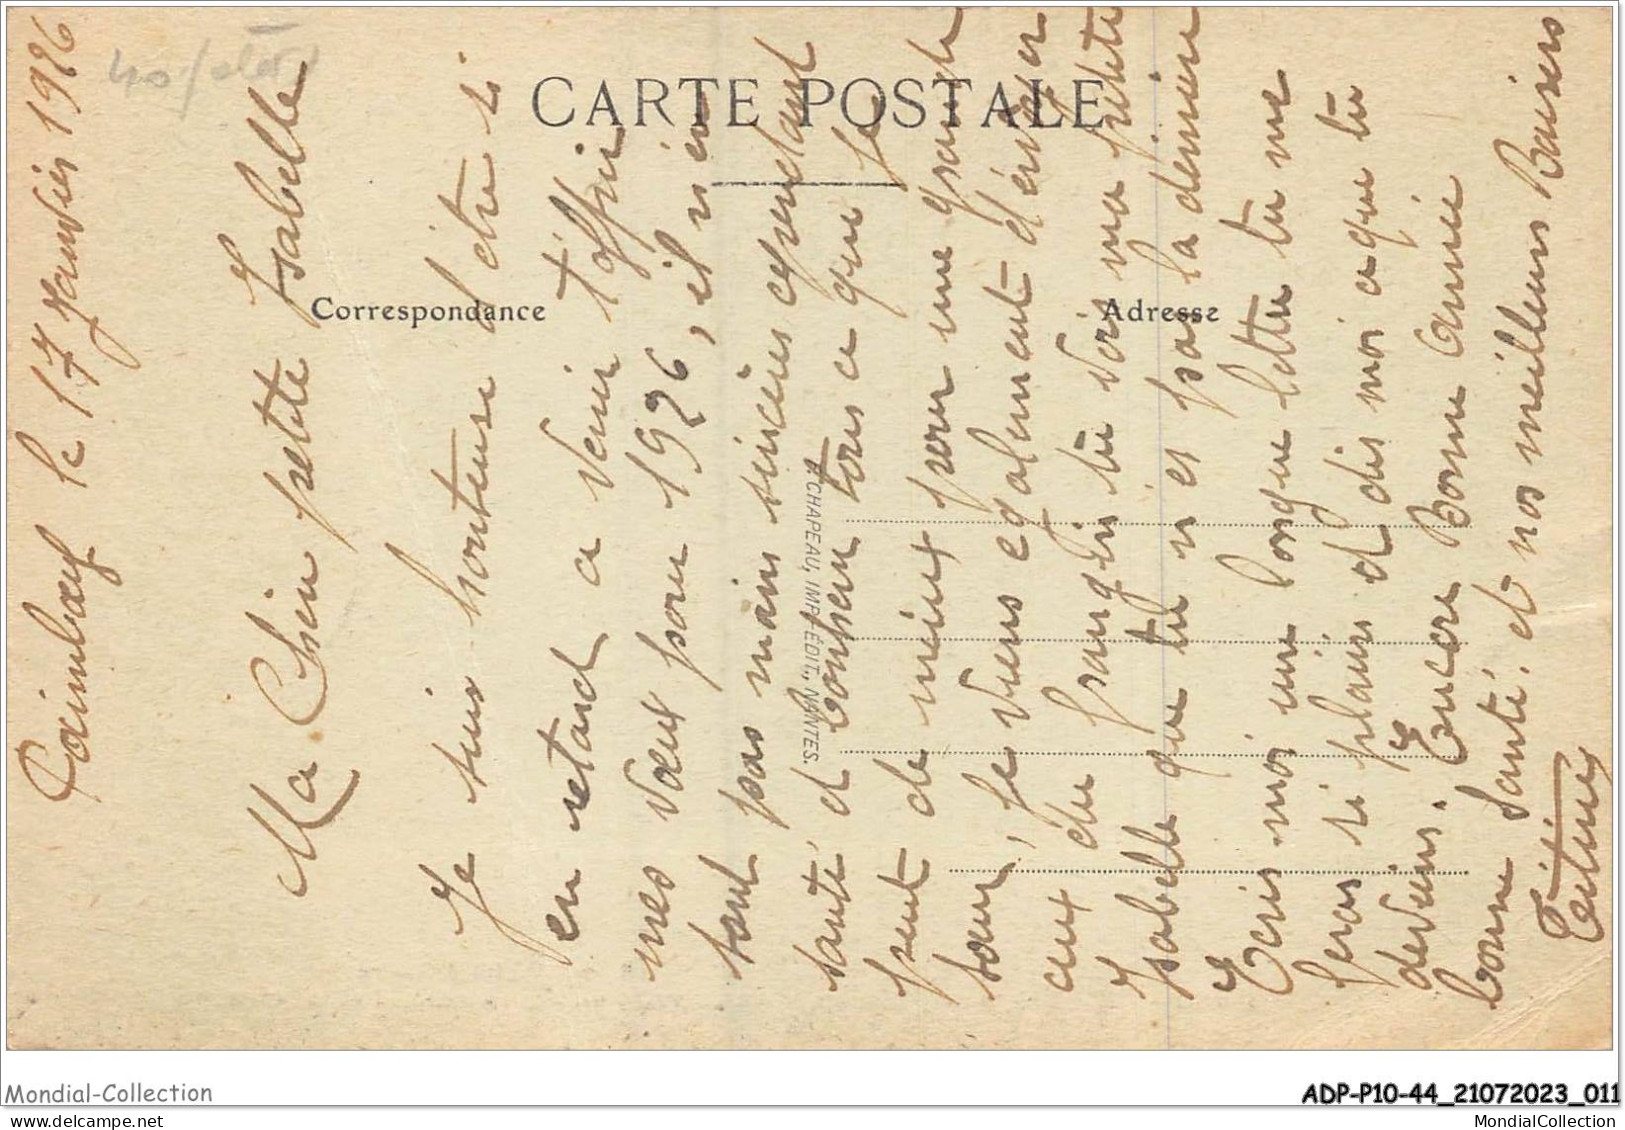 40-/état
CARTE POSTALE
Correspondance
Adresse
CHAPEAU, IMP.-ÉDIT., NANTES.
Paimbœuf le 17 Janvier 1926
Ma Chère petite Isabelle
Je suis honteuse d'être si
en retard a venir t'offrir
mes vœux pour 1926, il n'en
sont pas moins sincères cependant
santé et bonheur tous ce que je
peut de mieux pour une grande
sœur, je viens également d'envoyer
ceux du frangin tu vois ma petite
Isabelle que tu n'es pas la dernière
Ecris moi une longue lettre tu me
feras si plaisir et dis moi ce que tu
deviens. Encore Bonne Année
bonne Santé. et nos meilleurs Baisers
Titine
Mondial-Collection
ADP-P10-44_21072023_011
MondialCollection